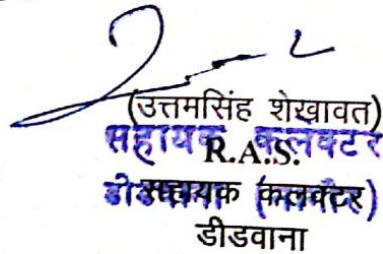 (उत्तमसिंह शेखावत)
सहायक कलक्टर
R.A.S.
सहायक (कलक्टर)
डीडवाना